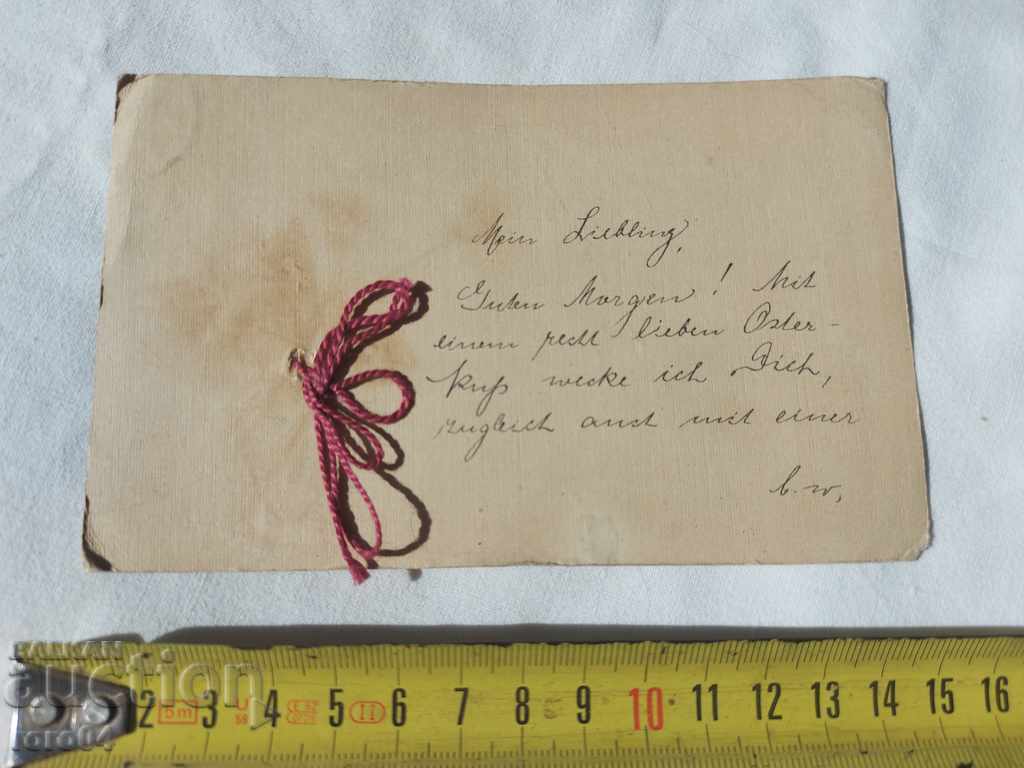 Mein Liebling,
Guten Morgen! Mit
einem recht lieben Oster-
kuß wecke ich Dich,
zugleich auch mit einer
b. w.
BALKAN
auction
toro84
2 3 4 5 6 7 8 9 10 11 12 13 14 15 16
5m
II